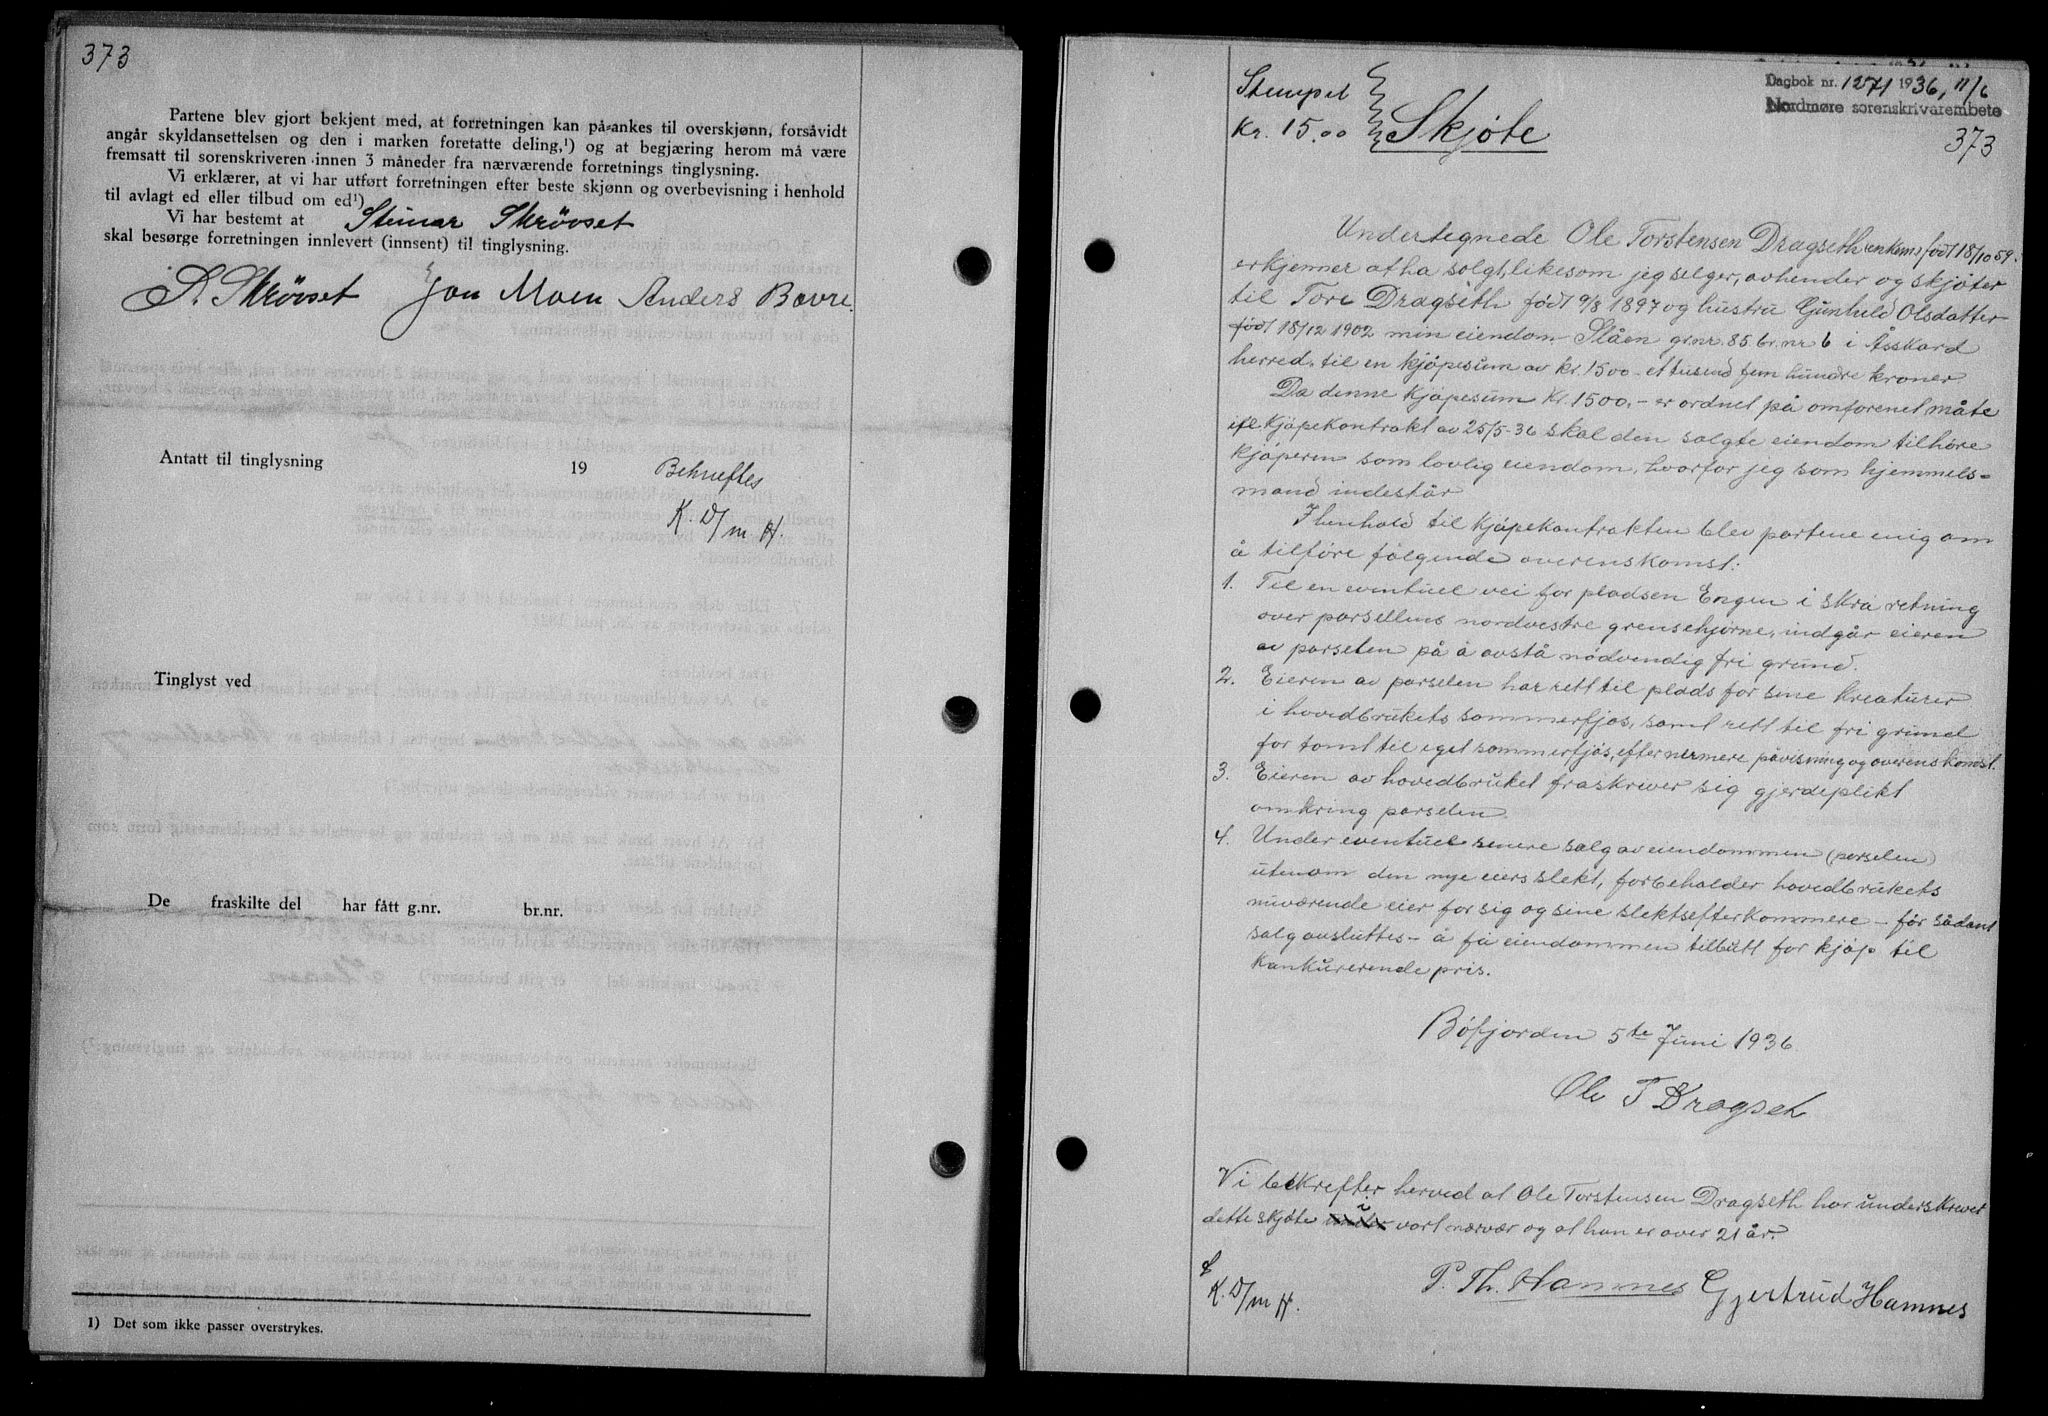 373
Partene blev gjort bekjent med, at forretningen kan på-ankes til overskjønn, forsåvidt
angår skyldansettelsen og den i marken foretatte deling,¹) og at begjæring herom må være
fremsatt til sorenskriveren innen 3 måneder fra nærværende forretnings tinglysning.
Vi erklærer, at vi har utført forretningen efter beste skjønn og overbevisning i henhold
til avlagt ed eller tilbud om ed¹)
Vi har bestemt at Steinar Skrövset
skal besørge forretningen innlevert (innsent) til tinglysning.
S. Skrövset Jon Moen Anders Bævre.
Antatt til tinglysning 19 Bekreftes
K. D/m H.
Tinglyst ved
De fraskilte del har fått g.nr. br.nr.
1) Det som ikke passer overstrykes.
Dagbok nr. 1271 1936, 11/6
Nordmøre sorenskriverembete
373
Stempel
Kr. 15.00
Skjöte
Undertegnede Ole Torstensen Dragseth enkem. født 18/10 59.
erkjenner at ha solgt, likesom jeg selger, avhender og skjöter
til Tore Dragseth født 9/8 1897 og hustru Gunhild Olsdatter
født 18/12 1902 min eiendom Slåen gr.nr. 85 br.nr 6 i Åsskard
herred, til en kjöpesum av kr. 1500 - ettusend fem hundre kroner.
Da denne kjöpesum Kr. 1500,- er ordnet på omforenet måte
ifl. kjöpekontrakt av 25/5-36 skal den solgte eiendom tilhöre
kjöperen som lovlig eiendom, hvorfor jeg som hjemmels-
mand indestår
I henhold til kjöpekontrakten blev partene enig om
å tilföre fölgende overenskomst:
1. Til en eventuel vei for pladsen Engen i skrå retning
over parsellens nordvestre grensehjörne, indgår eieren
av parselen på å avstå nödvendig fri grund.
2. Eieren av parselen har rett til plads for sine kreaturer
i hovedbrukets sommerfjös, samt rett til fri grund
for tomt til eget sommerfjös, efter nermere påvisning og overenskomst.
3. Eieren av hovedbruket fraskrever sig gjerdeplikt
omkring parselen.
4. Under eventuel senere salg av eiendommen (parselen)
utenom den nye eiers slekt, forbeholder hovedbrukets
nuværende eier for sig og sine slektsefterkommere - för sådant
salg avsluttes - å få eiendommen tilbutt for kjöp til
konkurerende pris.
Böfjorden 5te Juni 1936
Ole T Dragset
Vi bekrefter herved at Ole Torstensen Dragseth har underskrevet
dette skjöte i vort nærvær og at han er over 21 år.
K. D/m H.
P. Th. Hamnes Gjertrud Hamnes